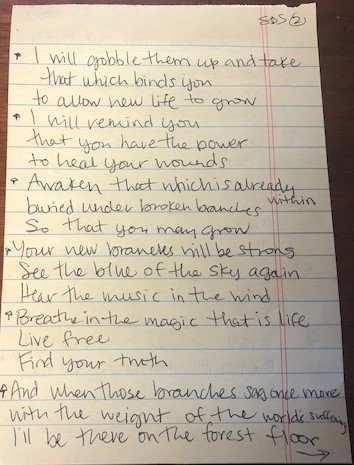 SDS (2)
• I will gobble them up and take
that which binds you
to allow new life to grow
• I will remind you
that you have the power
to heal your wounds
• Awaken that which is already
buried under broken branches within
So that you may grow
• Your new branches will be strong
See the blue of the sky again
Hear the music in the wind
• Breathe in the magic that is life
Live free
Find your truth
• And when those branches sag once more
with the weight of the world's suffering
I'll be there on the forest floor
→